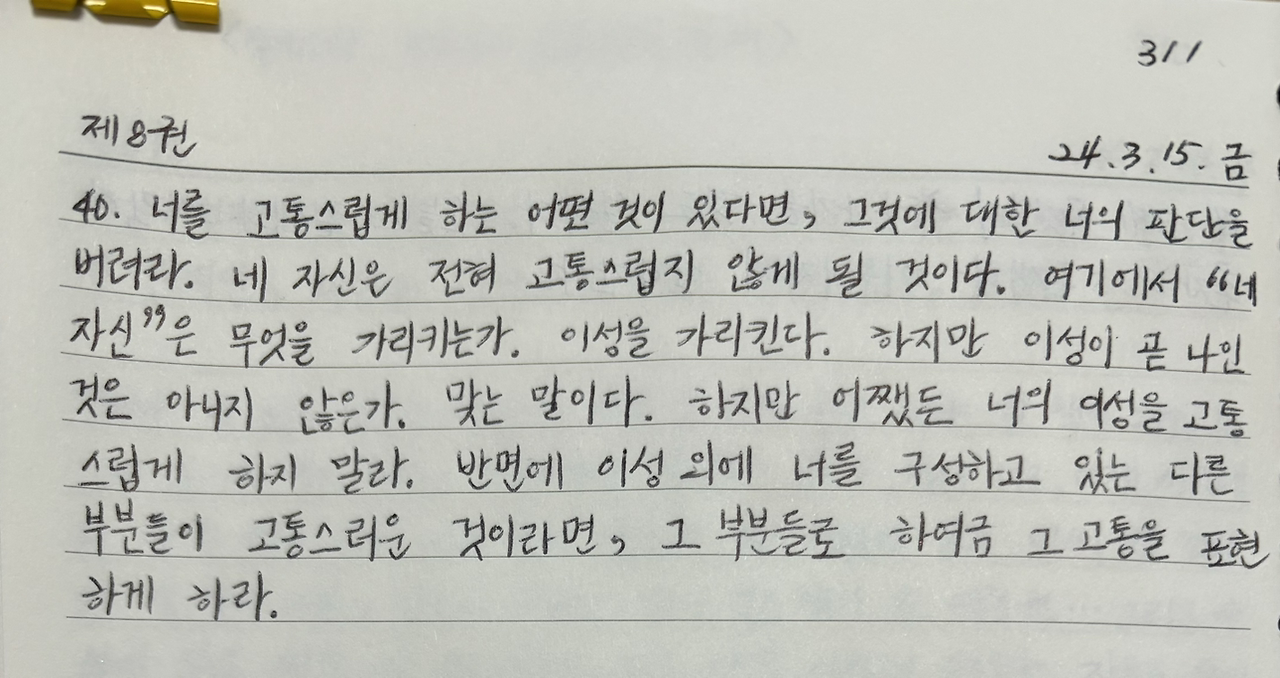 311
제8권
24.3.15. 금
40. 너를 고통스럽게 하는 어떤 것이 있다면, 그것에 대한 너의 판단을
버려라. 네 자신은 전혀 고통스럽지 않게 될 것이다. 여기에서 “네
자신”은 무엇을 가리키는가. 이성을 가리킨다. 하지만 이성이 곧 나인
것은 아니지 않은가. 맞는 말이다. 하지만 어쨌든 너의 여성을 고통
스럽게 하지 말라. 반면에 이성 외에 너를 구성하고 있는 다른
부분들이 고통스러운 것이라면, 그 부분들로 하여금 그 고통을 표현
하게 하라.